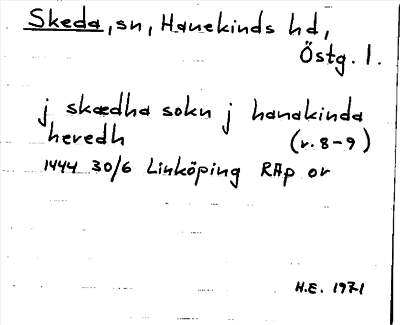 Skeda, sn, Hanekinds hd,
Östg. l.
j skædha sokn j hanakinda
heredh (r. 8-9)
1444 30/6 Linköping RAp or
H.E. 1971